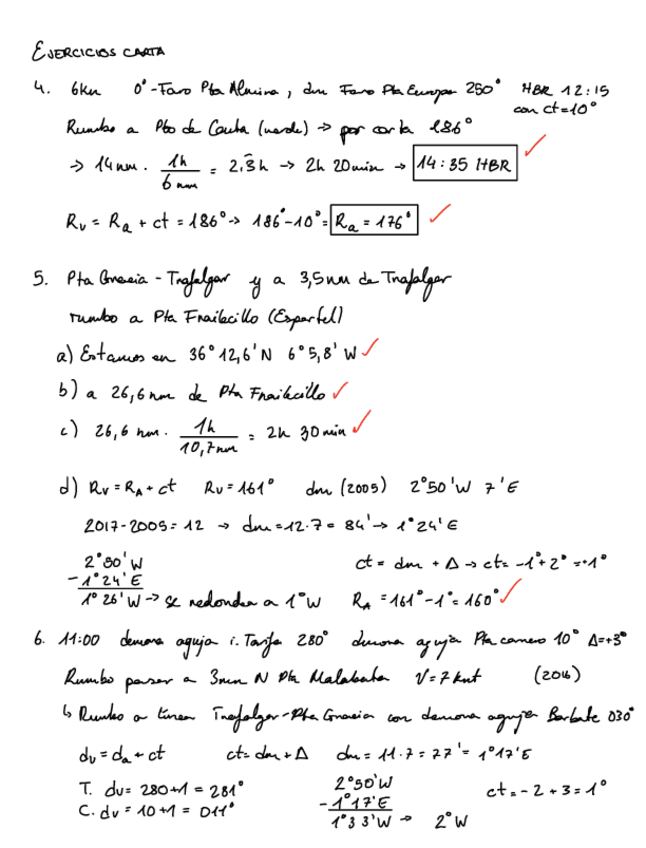 EJERCICIOS CARTA
4. 6kn 0° - Faro Pta Almina, dm Faro Pta Europa 250° HBR 12:15
con ct=10°
Rumbo a Pto de Ceuta (verde) → por carta 186°
→ 14nm · 1h / 6nm = 2,3̂ h → 2h 20min → 14:35 HBR
Rv = Ra + ct = 186° → 186°-10° = Ra = 176°
5. Pta Gracia - Trafalgar y a 3,5nm de Trafalgar
rumbo a Pta Frailecillo (Espartel)
a) Estamos en 36° 12,6' N 6° 5,8' W
b) a 26,6 nm de Pta Frailecillo
c) 26,6 nm · 1h / 10,7nm = 2h 30min
d) Rv = RA + ct Rv = 161° dm (2005) 2°50'W 7'E
2017-2005 = 12 → dm = 12·7 = 84' → 1°24'E
2°50'W ct = dm + Δ → ct = -1°+2° = +1°
-1°24'E
1°26'W → se redondea a 1°W RA = 161°-1° = 160°
6. 11:00 demora aguja i. Tarifa 280° demora aguja Pta carnero 10° Δ=+3°
Rumbo pasar a 3nm N Pta Malabata V = 7 knt (2016)
↳ Rumbo a línea Trafalgar-Pta Gracia con demora aguja Barbate 030°
dv = da + ct ct = dm + Δ dm = 11·7 = 77' = 1°17'E
T. dv = 280+1 = 281° 2°50'W ct = -2 + 3 = 1°
C. dv = 10+1 = 011° -1°17'E
1°33'W → 2°W